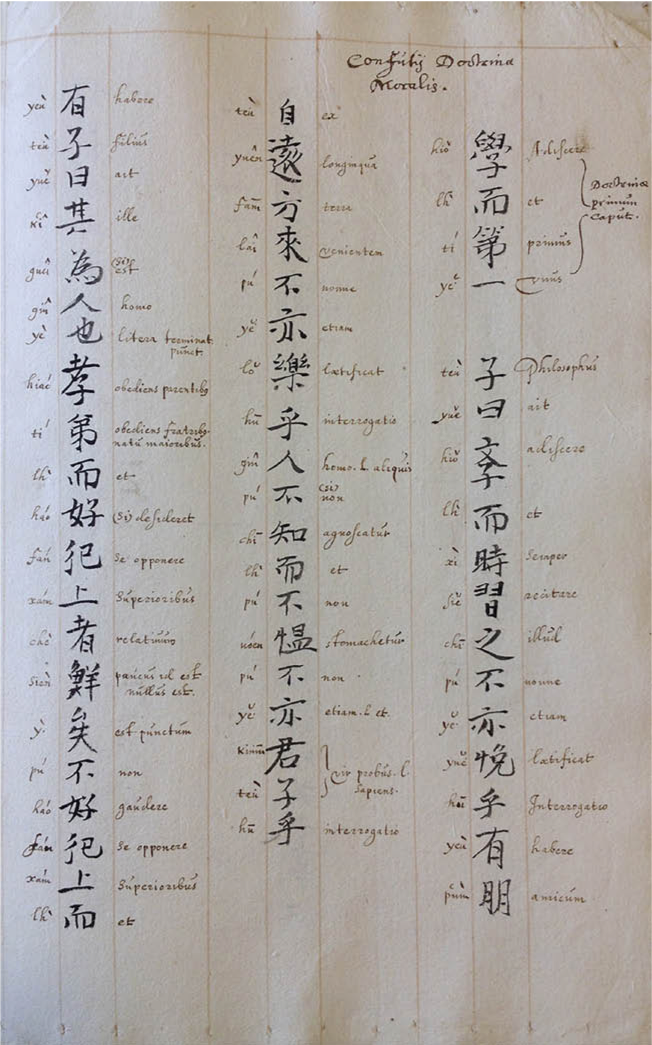 Confutij Doctrina
Moralis.
hiǒ 學 Adiscere
lĥ 而 et
tí 第 primus
yě 一 Unus
Doctrinæ
primum
caput.
teù 子 Philosophus
yuě 曰 ait
hiǒ 斈 adiscere
lĥ 而 et
xî 時 Semper
siě 習 recitare
chī 之 illud
pú 不 nonne
yě 亦 etiam
yuě 悅 lætificat
hū 乎 Interrogatio
yeù 有 habere
pûm 朋 amicum
teù 自 ex
yuèn 遠 longinqua
fām 方 terra
lâi 來 venientem
pú 不 nonne
yě 亦 etiam
lǒ 樂 lætificat
hū 乎 interrogatio
gîn 人 homo. l. aliquis
pú 不 (si) non
chī 知 agnoscatur
lĥ 而 et
pú 不 non
uóen 愠 stomachetur
pú 不 non
yě 亦 etiam. l. et
kiūm 君 Vir probus. l.
teù 子 Sapiens.
hū 乎 interrogatio
yeù 有 habere
teù 子 filius
yuě 曰 ait
kî 其 ille
guêi 為 (si) est
gîn 人 homo
yè 也 litera terminat. punct.
hiaó 孝 obediens parentibs
tí 第 obediens fratribs natu maioribus.
lĥ 而 et
háo 好 (Si) desideret
fán 犯 se opponere
xám 上 Superioribus
chè 者 relativum
sièn 鮮 paucus id est nullus est.
ỳ 矣 est punctum
pú 不 non
háo 好 gaudere
fán 犯 se opponere
xám 上 Superioribus
lĥ 而 et